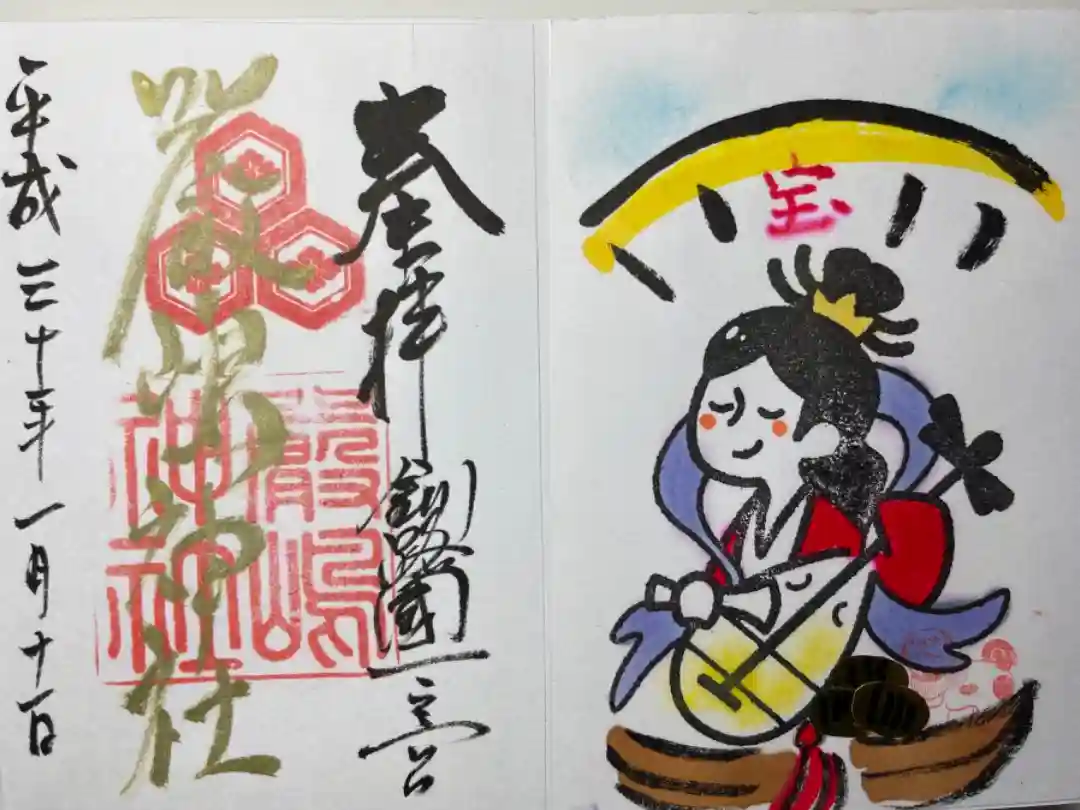 宝
奉拝 釧路國一之宮
厳島神社
嚴嶋
神社
平成三十年一月十一日